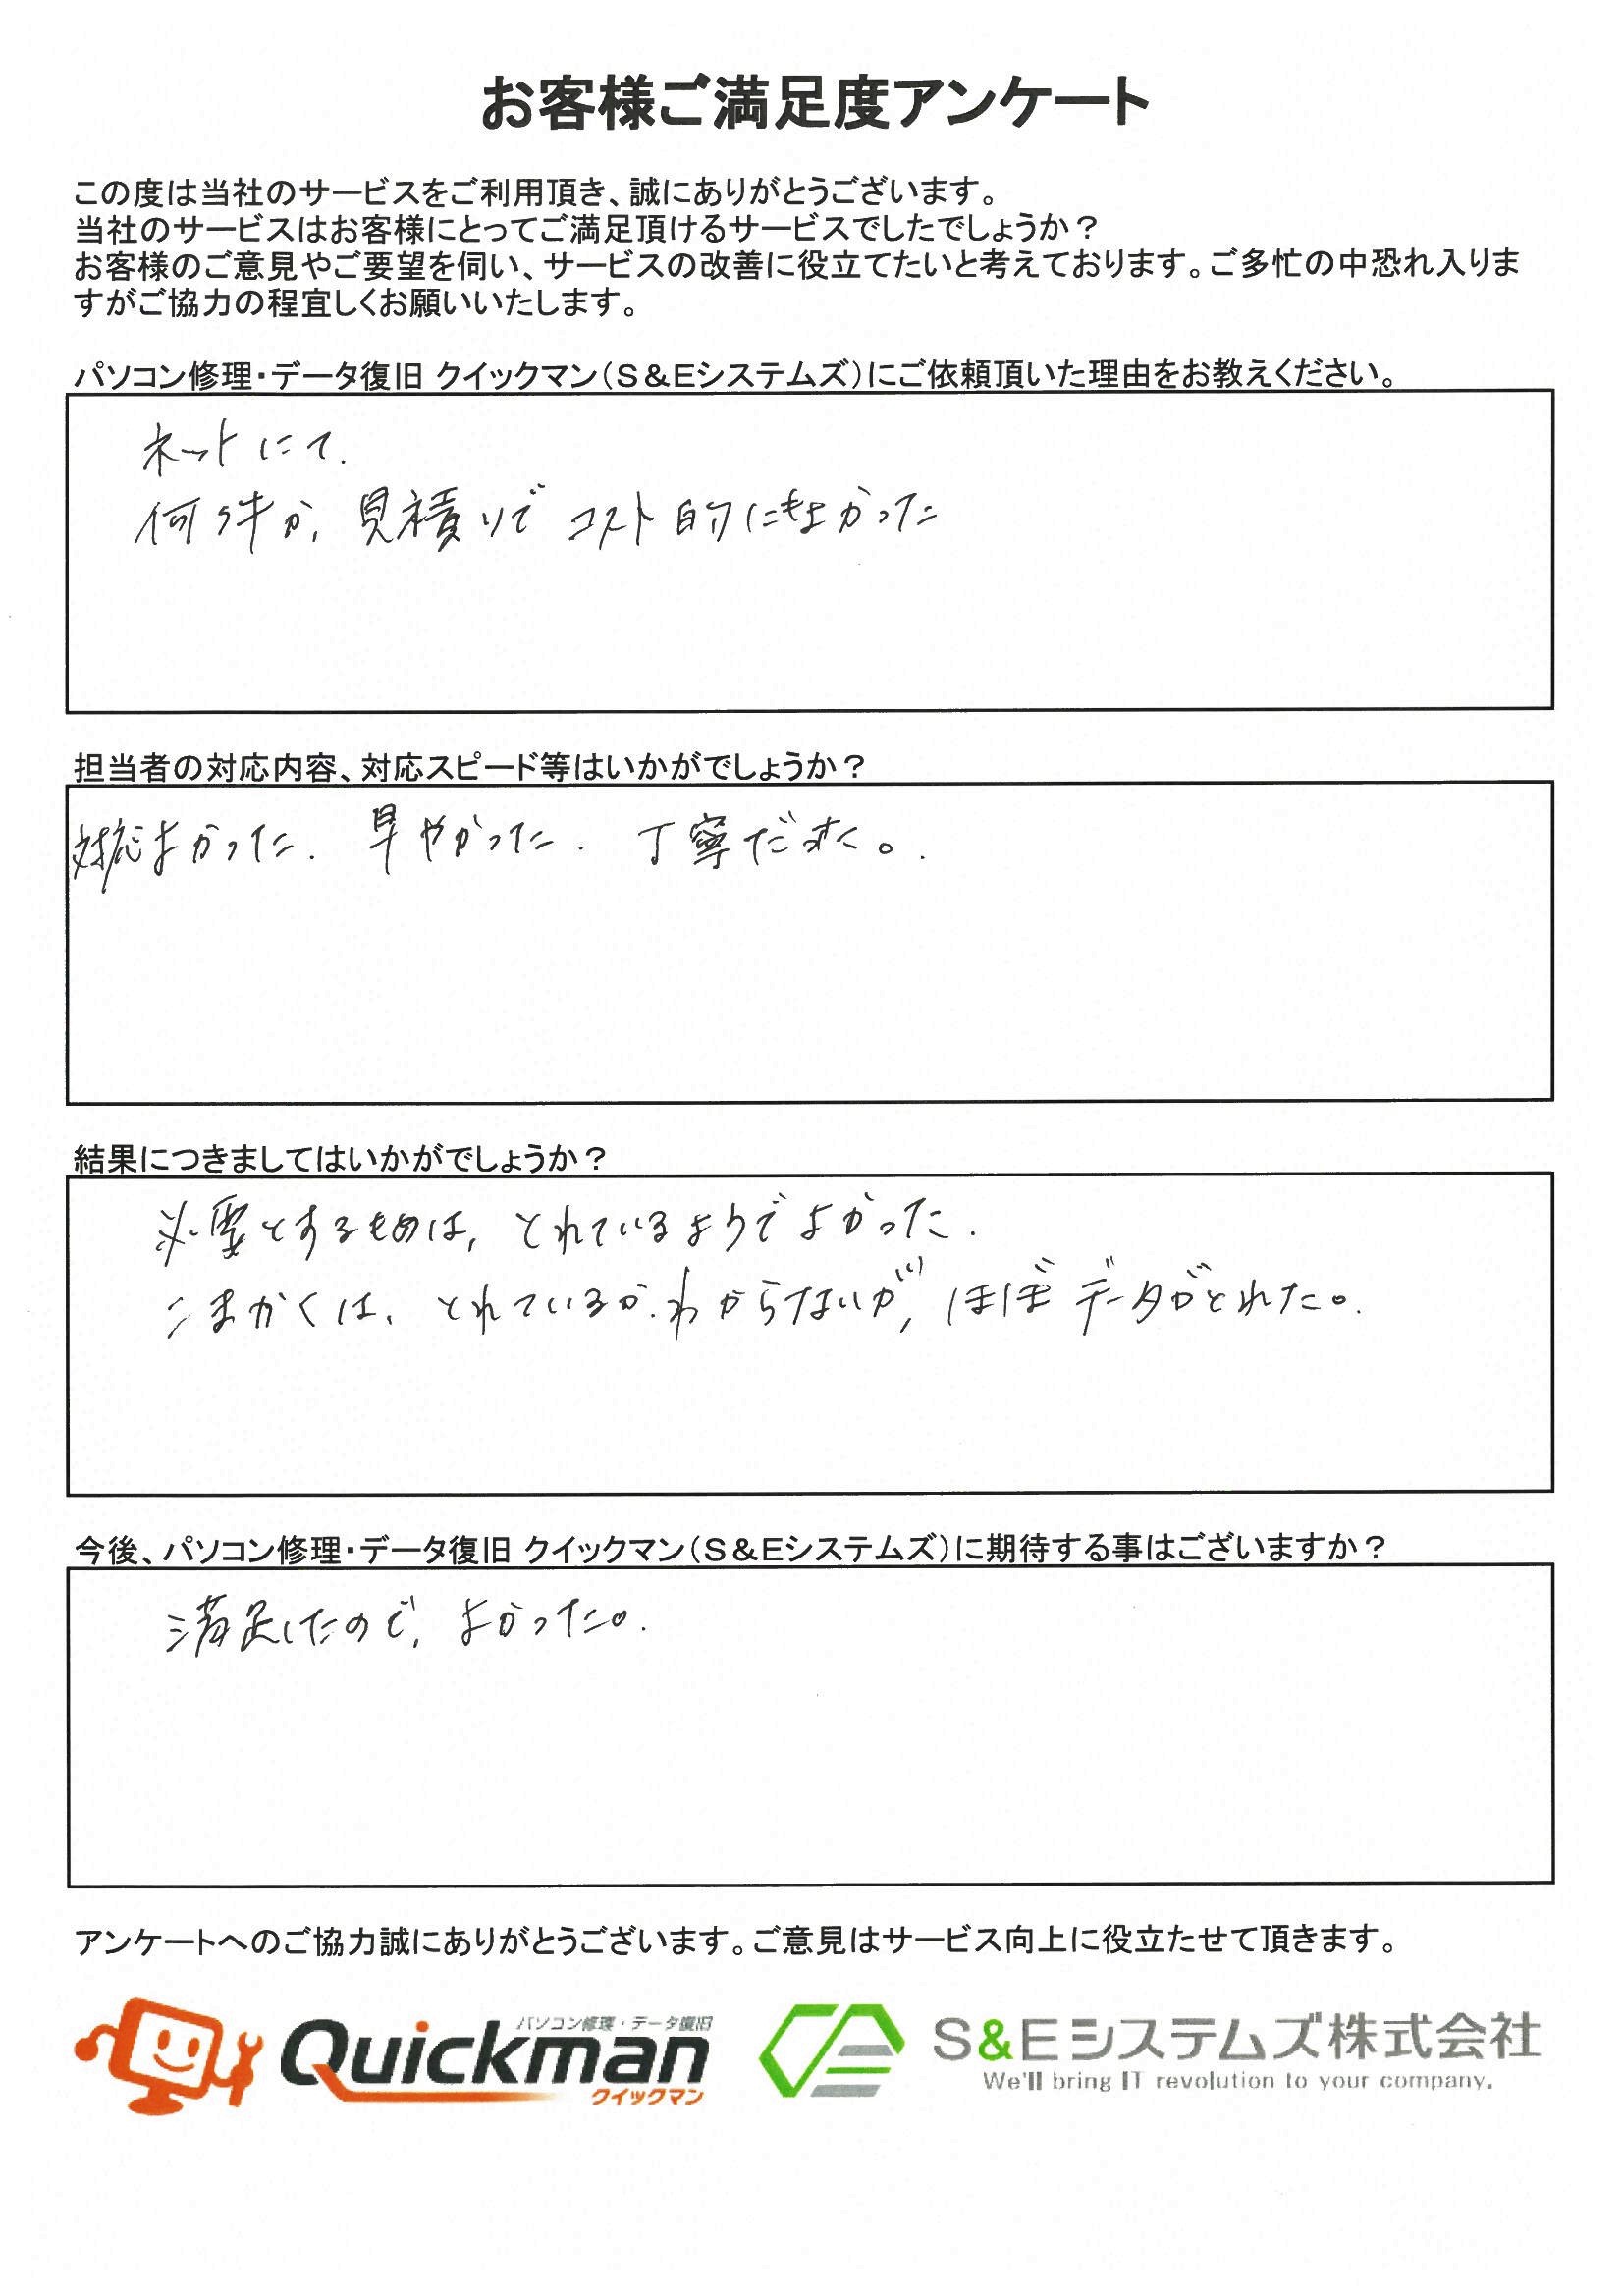 お客様ご満足度アンケート
この度は当社のサービスをご利用頂き、誠にありがとうございます。
当社のサービスはお客様にとってご満足頂けるサービスでしたでしょうか？
お客様のご意見やご要望を伺い、サービスの改善に役立てたいと考えております。ご多忙の中恐れ入りま
すがご協力の程宜しくお願いいたします。
パソコン修理・データ復旧 クイックマン（S＆Eシステムズ）にご依頼頂いた理由をお教えください。
ネットにて.
何件か、見積りでコスト的にもよかった
担当者の対応内容、対応スピード等はいかがでしょうか？
対応よかった. 早やかった. 丁寧だ
結果につきましてはいかがでしょうか？
必要とするものは、とれているようでよかった.
こまかくは、とれているか、わからないが、ほぼデータがとれた。
今後、パソコン修理・データ復旧 クイックマン（S＆Eシステムズ）に期待する事はございますか？
満足したので、よかった。
アンケートへのご協力誠にありがとうございます。ご意見はサービス向上に役立たせて頂きます。
パソコン修理・データ復旧
Quickman
クイックマン
S&Eシステムズ株式会社
We'll bring IT revolution to your company.